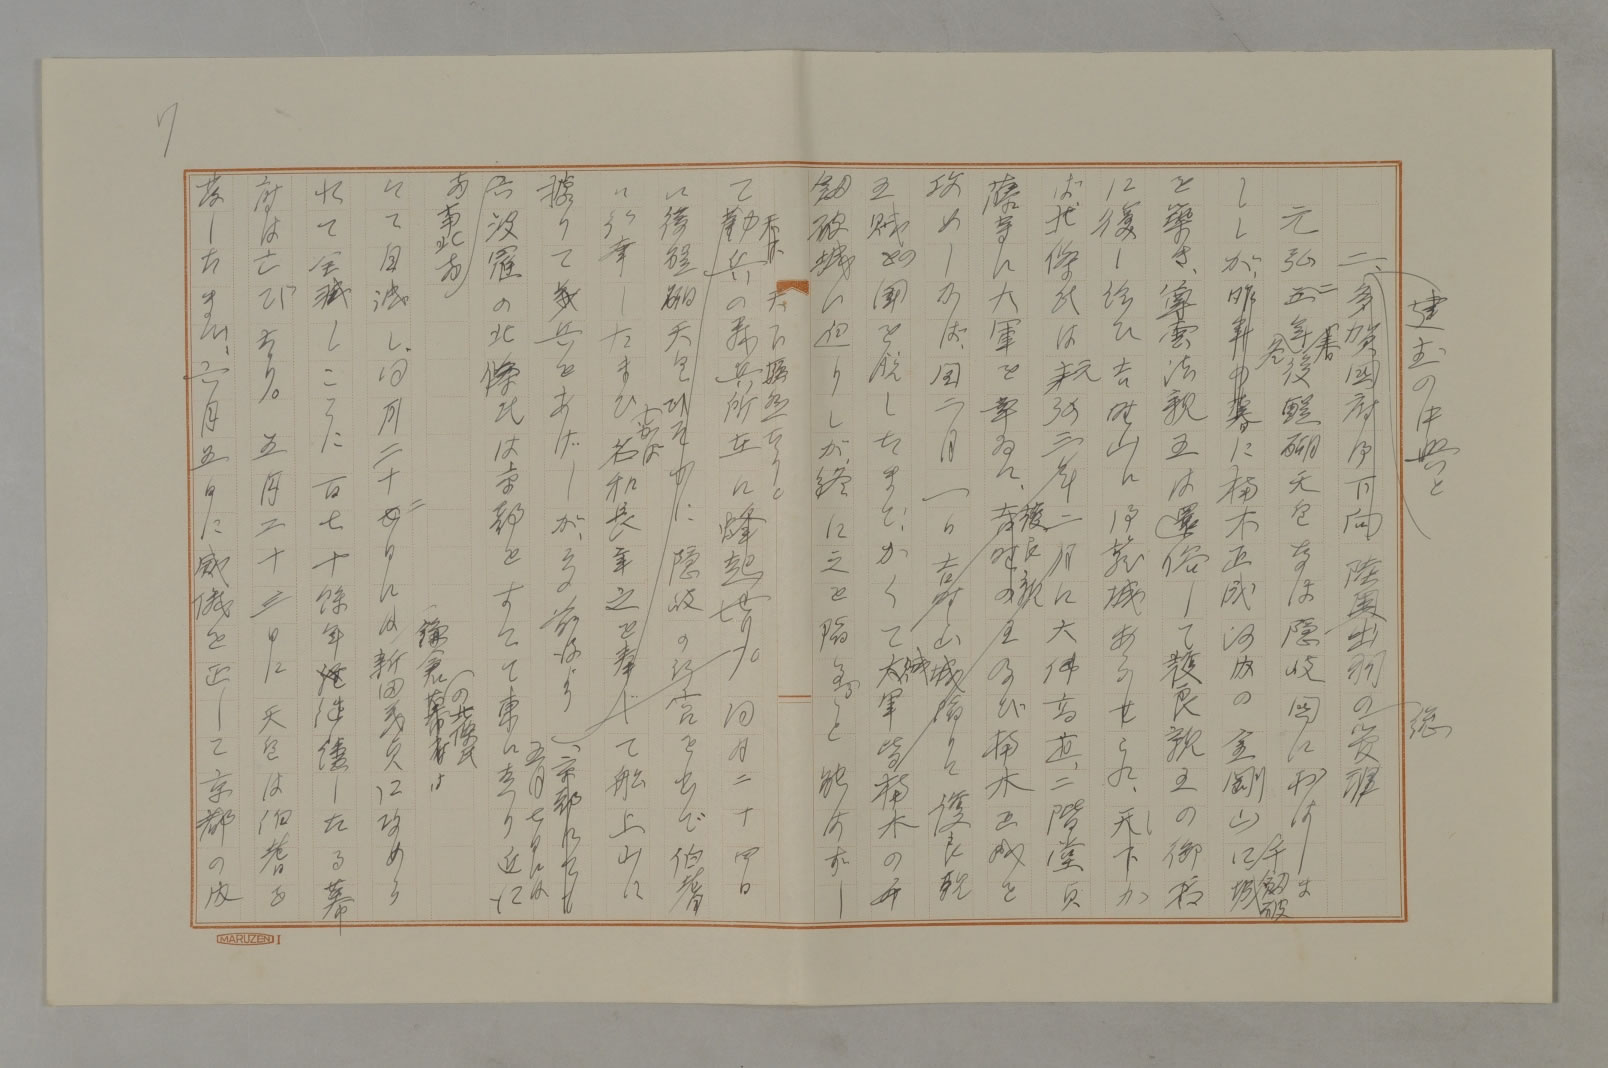 7
建武の中興と
二、多賀國府御下向 陸奥出羽の安堵
元弘二年後醍醐天皇なほ隠岐國におはしま
ししが、昨年の暮に楠木正成河内の金剛山に城
千劔破
を築き、尊雲法親王は還俗して護良親王の御名
に復し給ひ吉野山に御籠城あらせられ、天下か
ば北條氏は元弘三年二月に大佛高直、二階堂貞
藤等に大軍を率ゐて、吉野の王及び楠木正成を
護良親
攻めしかば、同二月一日吉野山城陥りて護良親
王賊の圍を脱したまひ、かくて賊軍皆楠木の千
劔破城に迫りしが、終に之を陥るゝと能はずし
天下騒然たり。
て勤王の義兵所在に蜂起せり。同月二十四日
に後醍醐天皇ひそかに隠岐の行宮を出で伯耆
に行幸したまひ名和長年之を奉じて船上山に
據りて義兵をあげしが、
京都にても
五月七日には
六波羅の北條氏は京都をすてて東に走り近江
鎌倉幕府は
の北條氏
にて自滅し、同月二十二日には新田義貞に攻めら
れて全滅しこゝに百七十餘年継續したる幕
府は亡びたり。五月二十三日に天皇は伯耆を
發したまひ、六月五日に威儀を正して京都の内
MARUZEN I